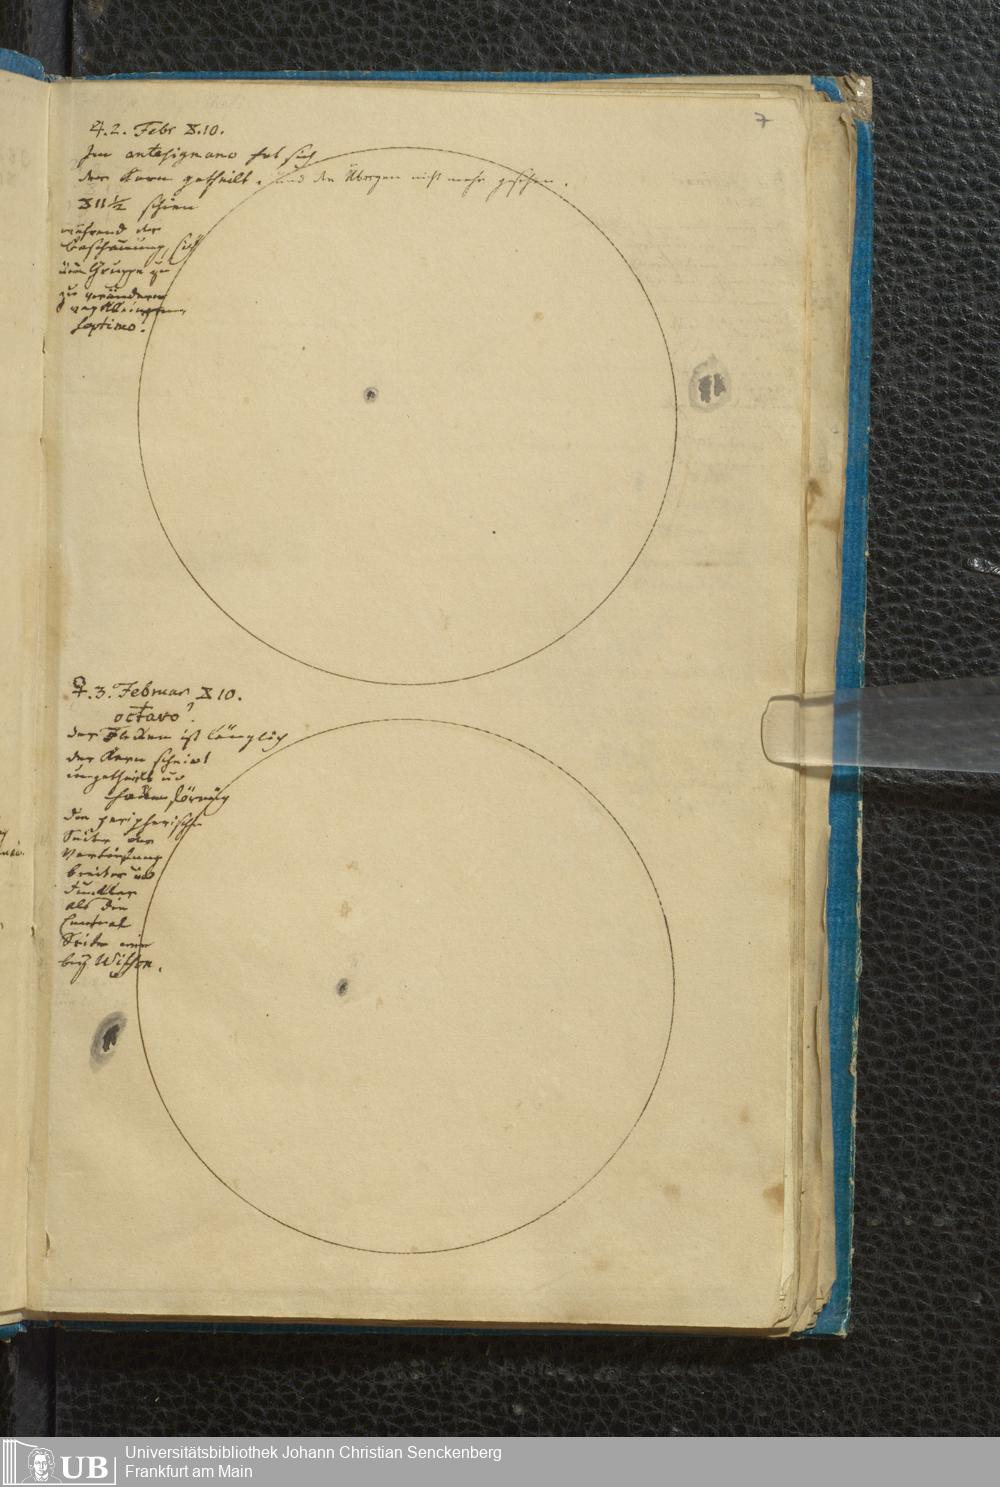 7
♃. 2. Febr ⧖. 10.
Im antesignano hat sich
der Kern getheilt. und die Übrigen nicht mehr gesehen.
⧖ 11 1/2 schien
während der
beschauung, sich
die Gruppe zu
zu verändern
septimo!
♀. 3. Februar ⧖ 10.
octavo?
der Flecken ist länglich
der Kern scheint
ungetheilt und
die peripherische
Seite der
breiter und
dunkler
als die
Central
Seite wie
bey Wilson.
UB
Universitätsbibliothek Johann Christian Senckenberg
Frankfurt am Main